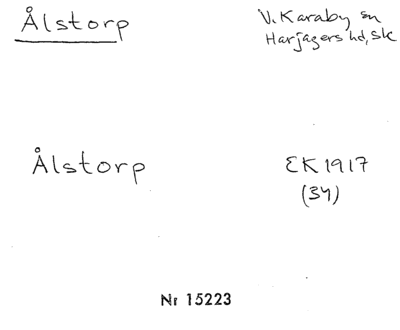 Ålstorp
V. Karaby sn
Harjagers hd, Sk
Ålstorp
EK 1917
(34)
Nr 15223